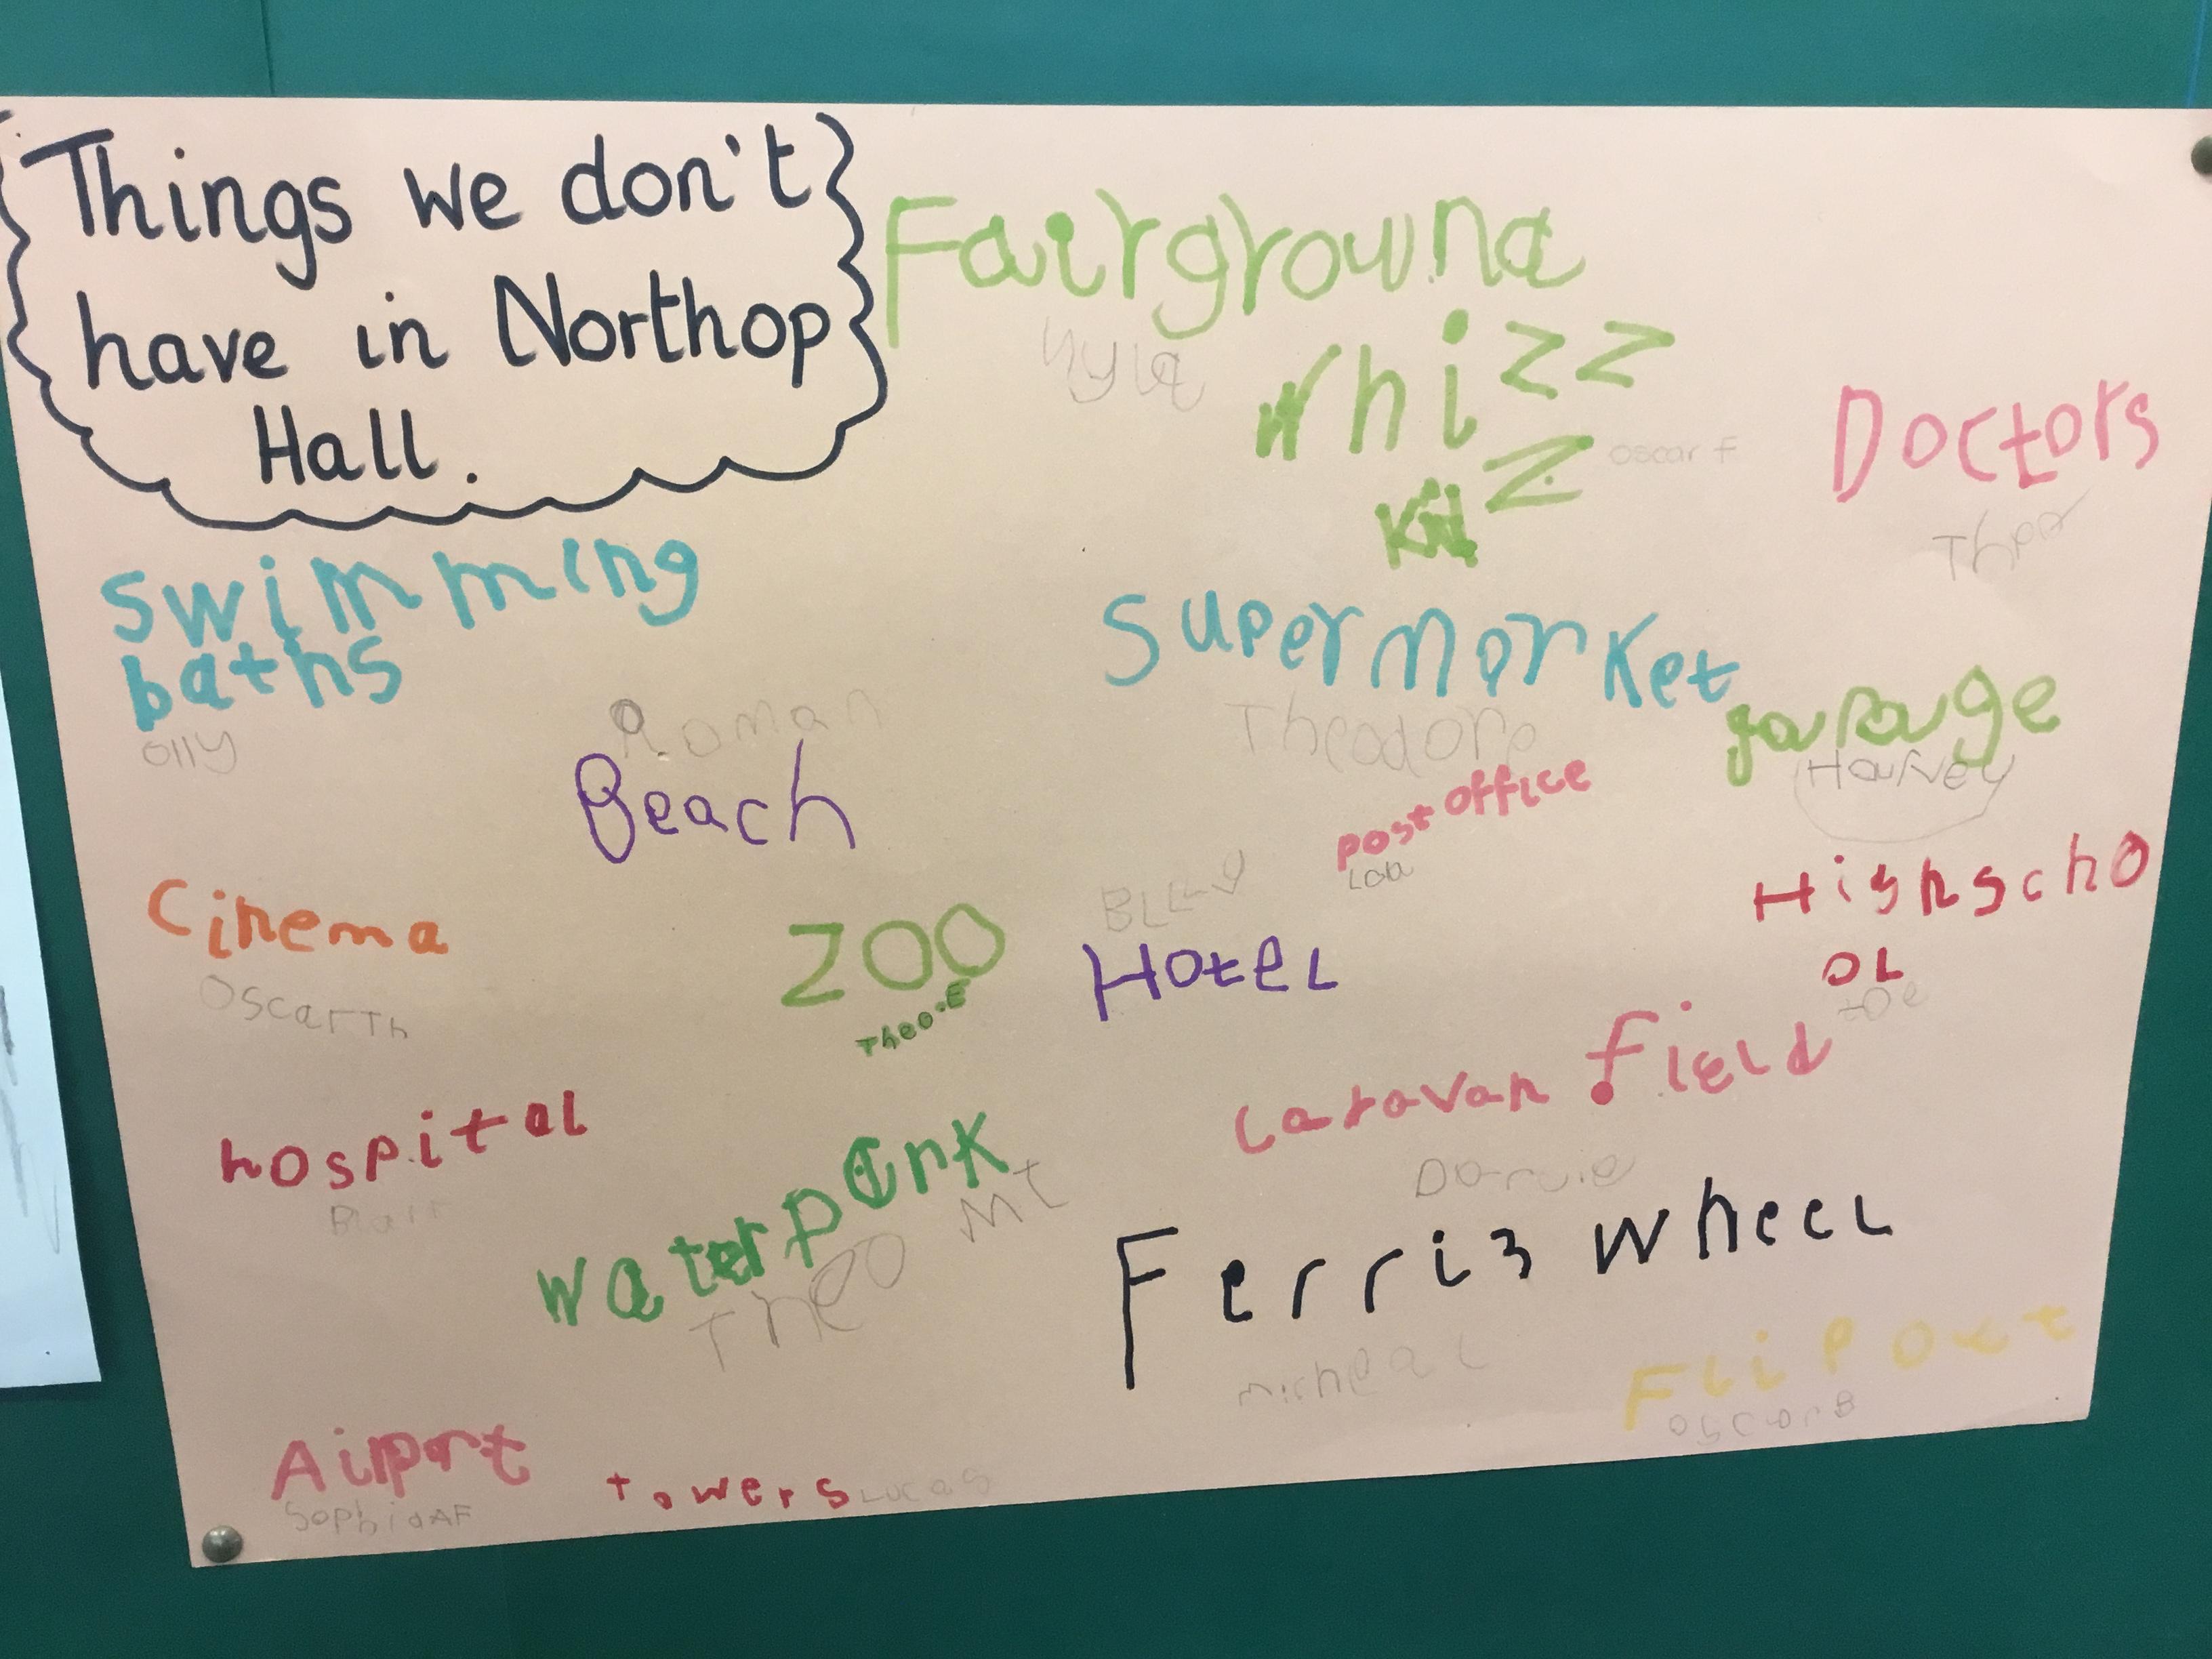 Things we don't
have in Northop
Hall.
Fairground
Nyla
Whizz
Kidz
oscar f
Doctors
Thea
swimming
baths
olly
Supermarket
Theodore
garage
Harvey
Roman
Beach
post office
Lola
Cinema
OscarTh
ZOO
Theo.E
Hotel
Highscho
OL
hospital
Blair
caravan field
waterpark
Theo Mt
Ferris wheel
micheal
Flip Out
oscar B
Airport
SophiaAF
towers
Lucas